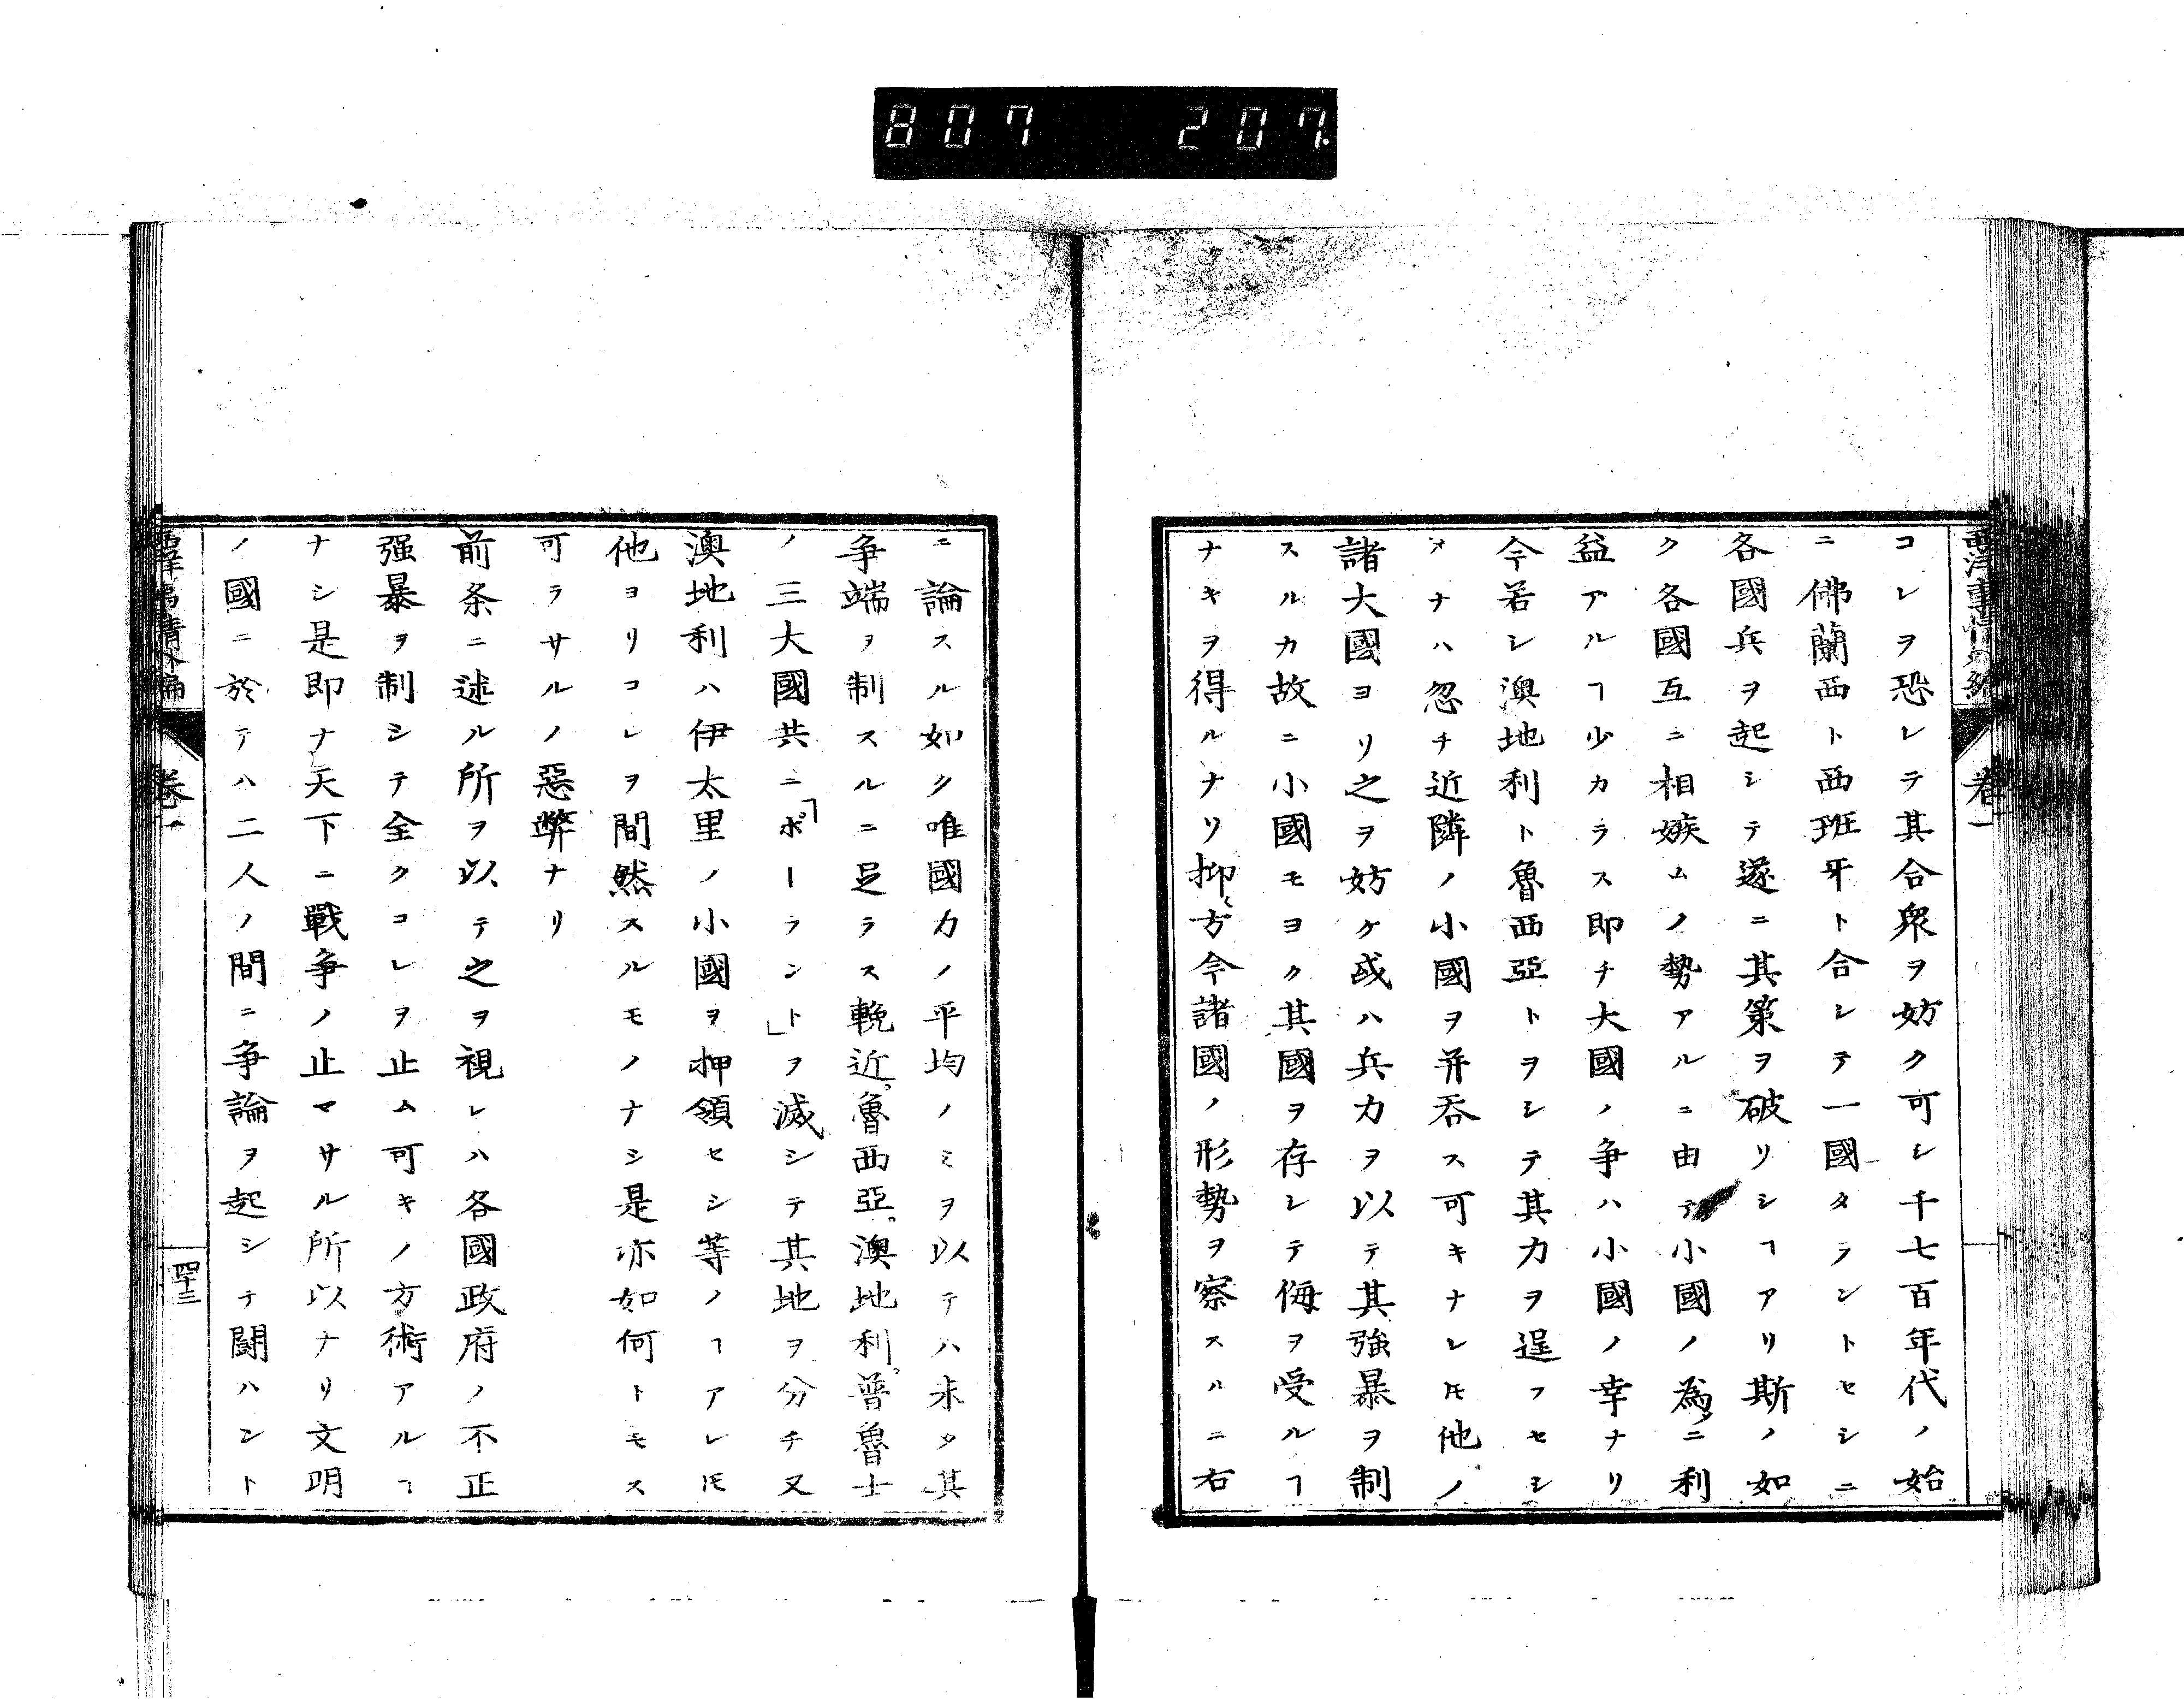 807 207
西洋事情外編 卷一
コレヲ恐レテ其合衆ヲ妨ク可シ千七百年代ノ始
ニ佛蘭西ト西班牙ト合シテ一國タランドセシニ
各國兵ヲ起シテ遂ニ其策ヲ破リシヿアリ斯ノ如
ク各國互ニ相嫉ムノ勢アルニ由テ小國ノ為メニ利
益アルヿ少カラス即チ大國ノ争ハ小國ノ幸ナリ
今若シ澳地利ト魯西亞トヲシテ其力ヲ逞フセシ
メナハ忽チ近隣ノ小國ヲ并吞ス可キナレ𪜈他ノ
諸大國ヨリ之ヲ妨ケ或ハ兵力ヲ以テ其強暴ヲ制
スルカ故ニ小國モヨク其國ヲ存シテ侮ヲ受ルヿ
ナキヲ得ルナリ抑〻方今諸國ノ形勢ヲ察スルニ右
ニ論スル如ク唯國力ノ平均ノミヲ以テハ未タ其
争端ヲ制スルニ足ラス輓近魯西亞澳地利普魯士
ノ三大國共ニ「ポーランド」ヲ滅シテ其地ヲ分チ又
澳地利ハ伊太里ノ小國ヲ押領セシ等ノヿアレ𪜈
他ヨリコレヲ間然スルモノナシ是亦如何トモス
可ラサルノ惡弊ナリ
前条ニ述ル所ヲ以テ之ヲ視レハ各國政府ノ不正
强暴ヲ制シテ全クコレヲ止ム可キノ方術アルヿ
ナシ是即ナ天下ニ戰争ノ止マサル所以ナリ文明
ノ國ニ於テハ二人ノ間ニ争論ヲ起シテ鬪ハント
西洋事情外編 卷一 四十三